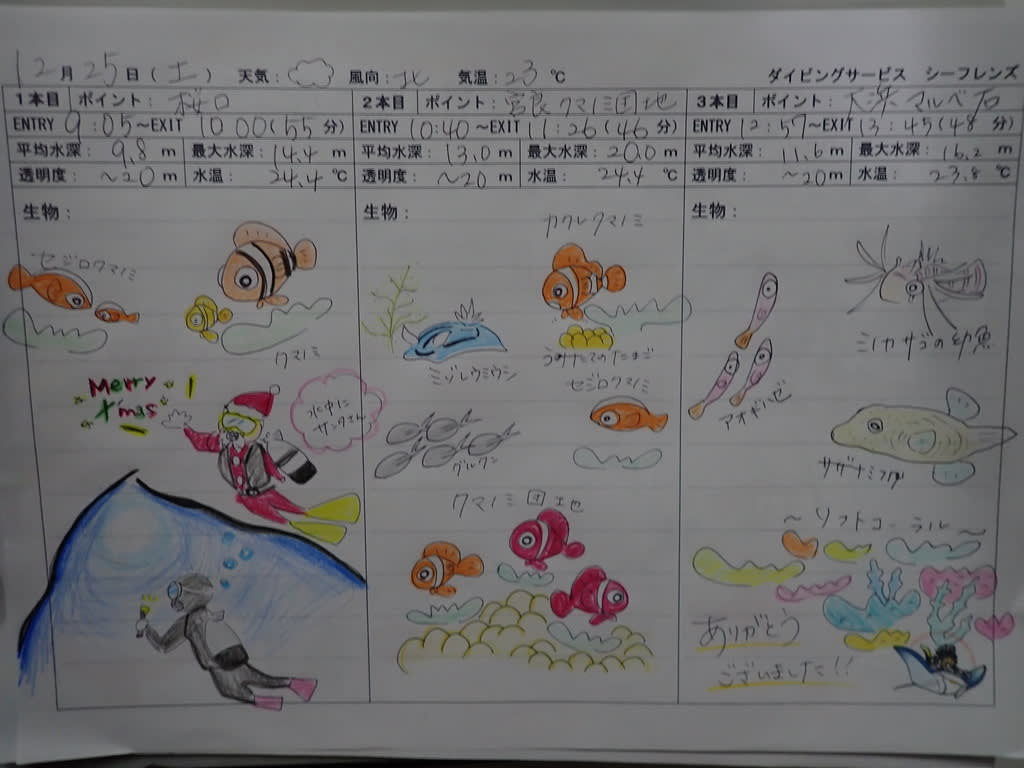 12月25日(土) 天気: 風向:北 気温:23℃ ダイビングサービス シーフレンズ
1本目 ポイント: 桜口
ENTRY 9:05~EXIT 10:00(55分)
平均水深: 9.8m 最大水深: 14.4m
透明度: ~20m 水温: 24.4℃
生物:
セジロクマノミ
クマノミ
Merry
X'mas
水中に
サンタさん
2本目 ポイント: 宮良クマノミ団地
ENTRY 10:40~EXIT 11:26(46分)
平均水深: 13.0m 最大水深: 20.0m
透明度: ~20m 水温: 24.4℃
生物:
カクレクマノミ
ミゾレウミウシ
のたまご
セジロクマノミ
グルクン
クマノミ団地
3本目 ポイント: マルベ石
ENTRY 12:57~EXIT 13:45(48分)
平均水深: 11.6m 最大水深: 16.2m
透明度: ~20m 水温: 23.8℃
生物:
ミノカサゴの幼魚
アオギハゼ
サザナミフグ
~ソフトコーラル~
ありがとう
ございました!!